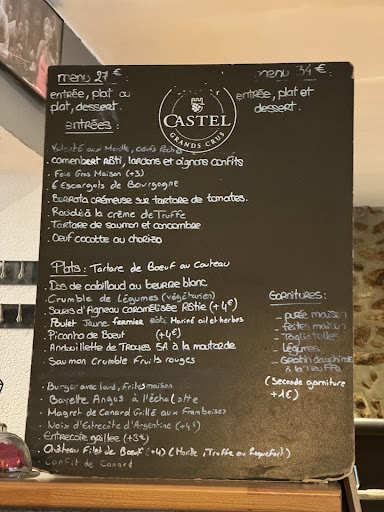 menu 27 €
entrée, plat ou
plat, dessert.
menu 34 €
entrée, plat et
dessert.
CASTEL
GRANDS CRUS
entrées :
Velouté aux Morille, oeufs Pochés
camembert Rôti, lardons et oignons confits
Foie Gras Maison (+3)
6 Escargots de Bourgogne
Burrata crémeuse sur tartare de tomates.
Ravioli à la crème de Truffe
Tartare de saumon et concombre
Oeuf cocotte au chorizo
Plats : Tartare de Boeuf au Couteau
Dos de cabillaud au beurre blanc
Crumble de Légumes (végétarien)
Souris d'Agneau caramélisée Rôtie (+4€)
Poulet Jaune fermier Rôti Mariné ail et herbes
Picanha de Boeuf (+4€)
Andouillette de Troyes 5A à la moutarde
Saumon Crumble Fruits rouges
Burger avec lard, Frites maison
Bavette Angus à l'échalotte
Magret de Canard Grillé aux Framboises
Noix d'Entrecôte d'Argentine (+4€)
Entrecote (+3€)
Château Filet de Boeuf (+4) (Morille, Truffe ou Roquefort)
Confit de Canard
GARNITURES :
- purée maison
- frites maison
- Tagliatelles
- Légumes
- Gratin dauphinois
à la Truffe
(Seconde garniture
+1€)